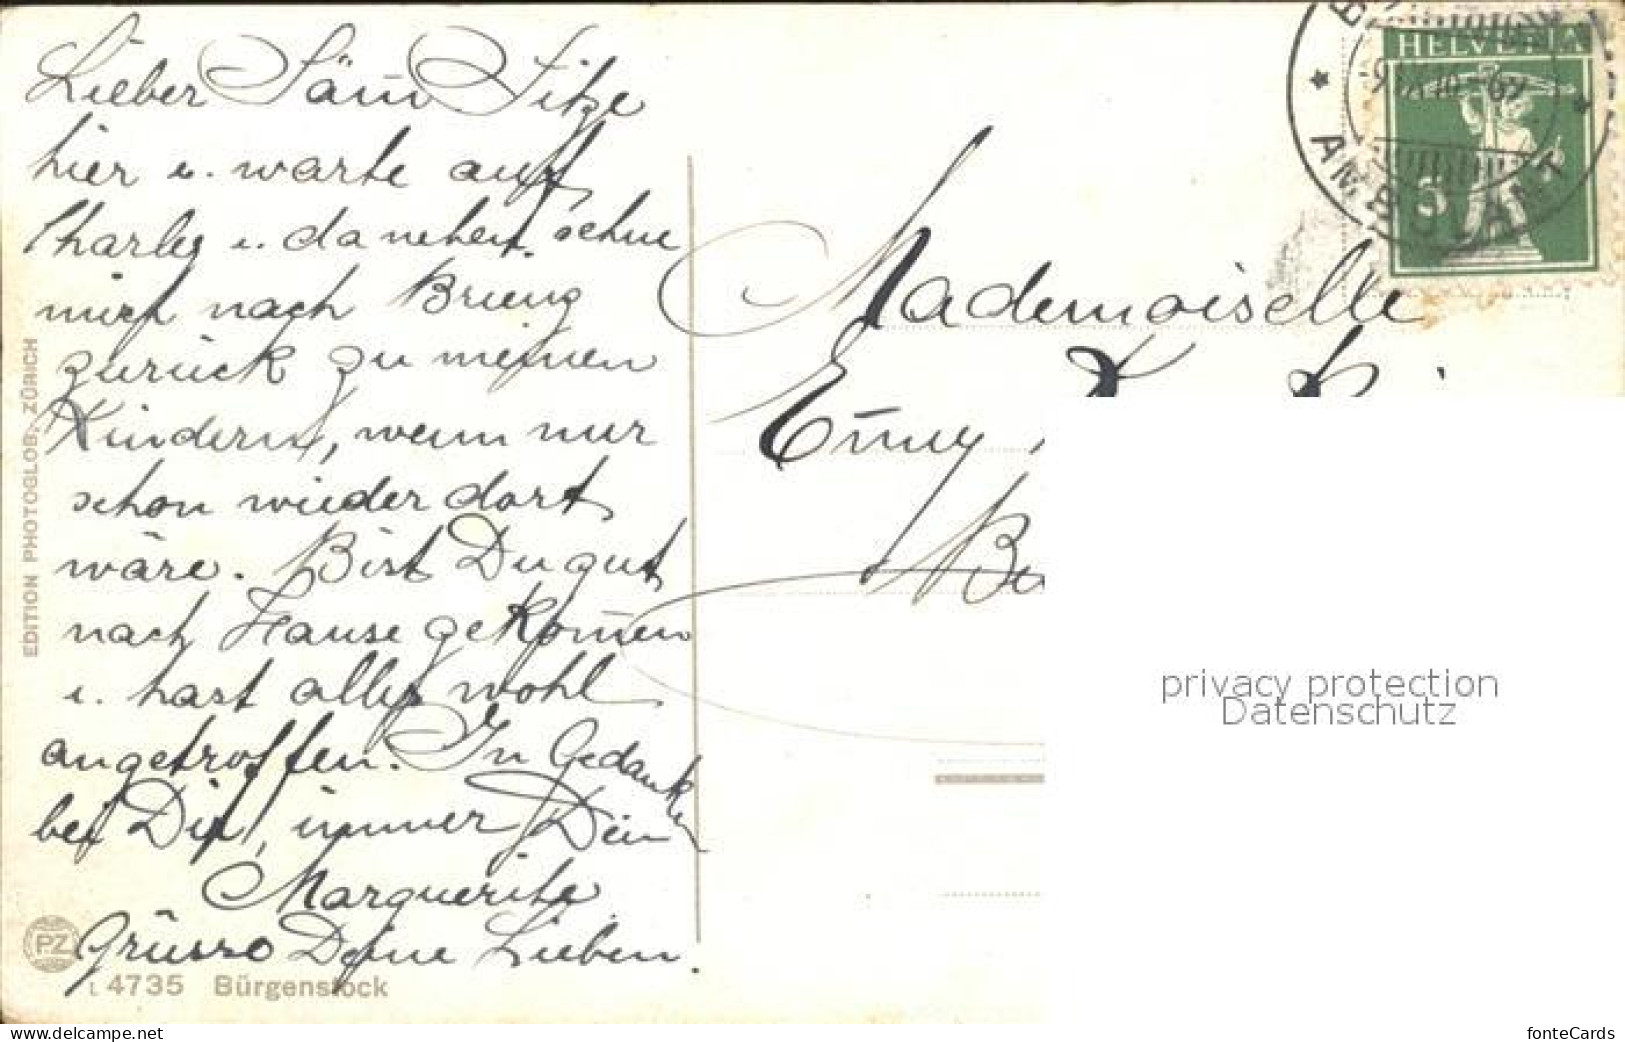 Lieber Säm̄ Sitze
hier u. warte auf
Charley u. daneben sehne
mich nach Brienz
zurück zu meinen
Kindern, wenn nur
schon wieder dort
wäre. Bist Du gut
nach Hause gekom̄en
u. hast alles wohl
angetroffen. In Gedanken
bei Dir, immer Dein
Marguerite
Grüsse Deine Lieben.
EDITION PHOTOGLOB, ZÜRICH
PZ
L 4735 Bürgenstock
HELVETIA
5
AMBULANT
Mademoiselle
Em̄y
privacy protection
Datenschutz
www.delcampe.net
fonteCards